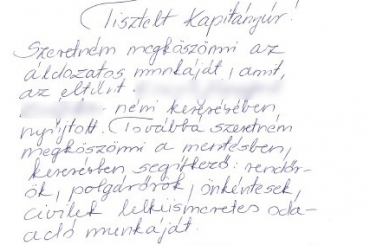 Tisztelt Kapitányúr!
Szeretném megköszönni az
áldozatos munkáját, amit,
az eltűnt
néni keresésében
nyújtott. Továbbá szeretném
megköszönni a mentésben,
keresésben segítkező: rendőr-
ök, polgárőrök, önkéntesek,
civilek lelkiismeretes oda-
adó munkáját.